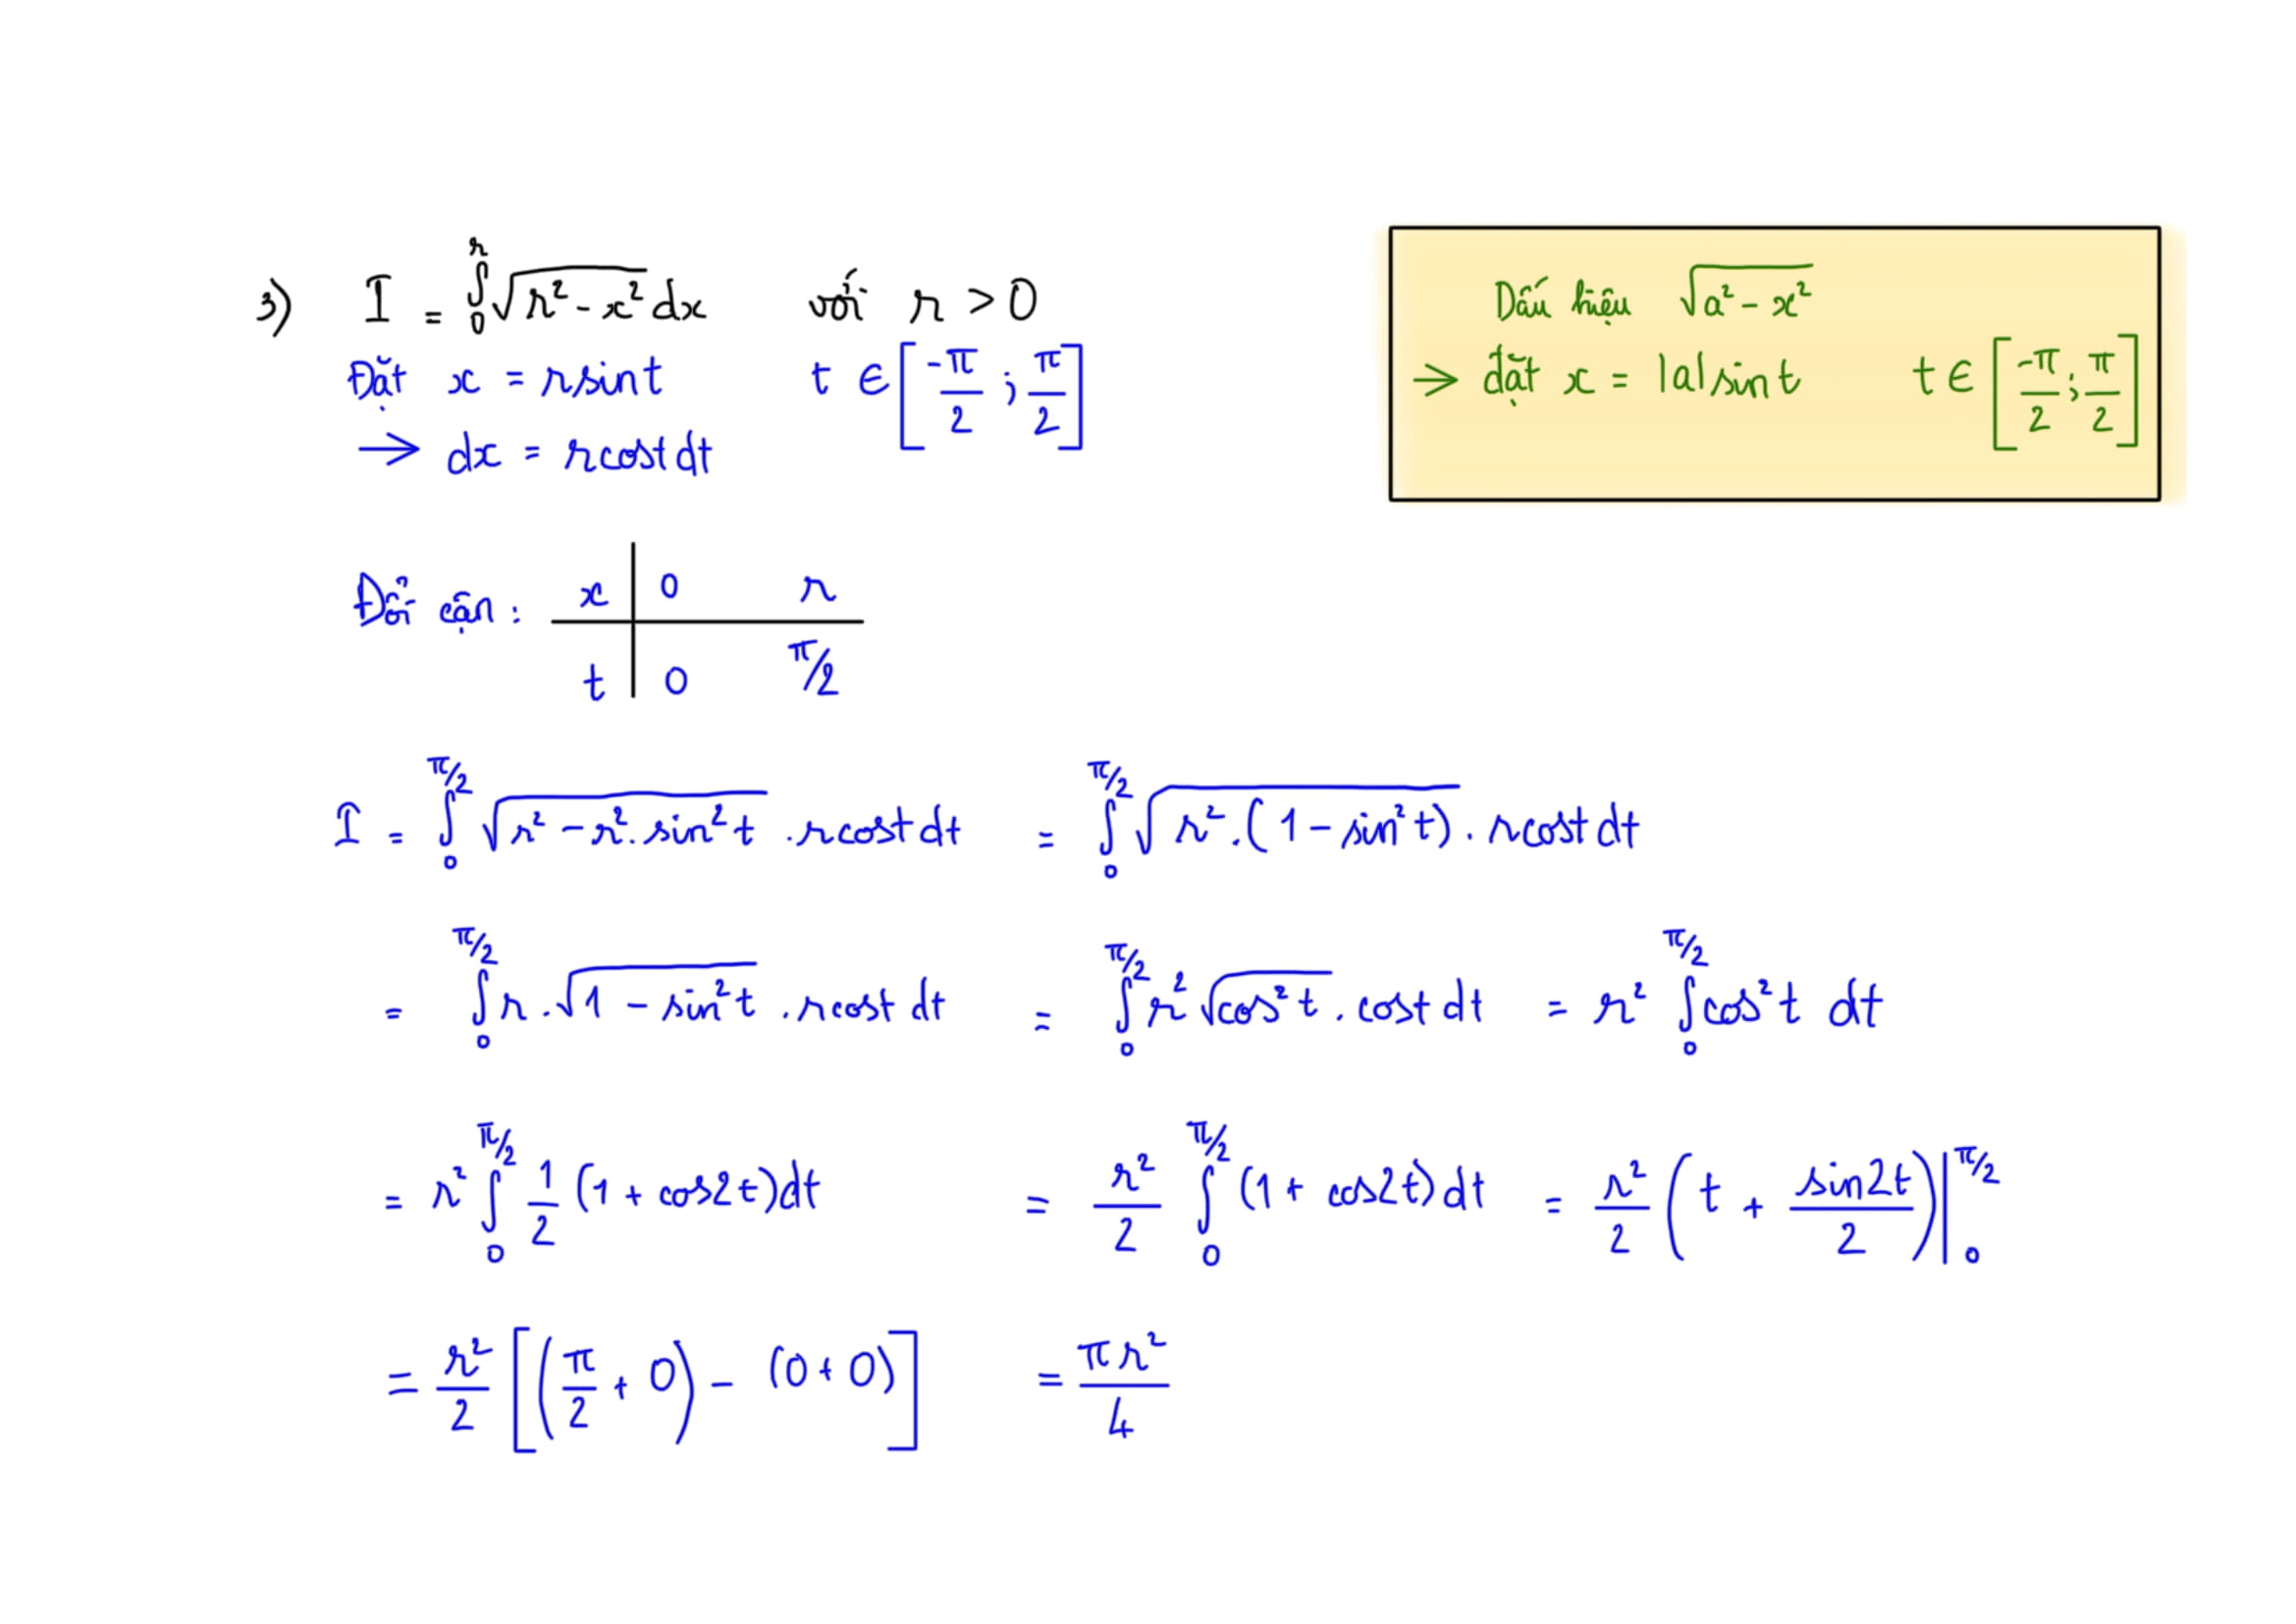 3) I = ∫₀^r √(r² - x²) dx với r > 0
Đặt x = r sin t t ∈ [-π/2 ; π/2]
→ dx = r cos t dt
Dấu hiệu √(a² - x²)
→ đặt x = |a| sin t t ∈ [-π/2 ; π/2]
Đổi cận :
x 0 r
t 0 π/2
I = ∫₀^(π/2) √(r² - r² . sin² t) . r cos t dt = ∫₀^(π/2) √(r² . (1 - sin² t)) . r cos t dt
= ∫₀^(π/2) r . √(1 - sin² t) . r cos t dt = ∫₀^(π/2) r² √(cos² t) . cos t dt = r² ∫₀^(π/2) cos² t dt
= r² ∫₀^(π/2) 1/2 (1 + cos 2t) dt = r²/2 ∫₀^(π/2) (1 + cos 2t) dt = r²/2 (t + sin 2t/2) |₀^(π/2)
= r²/2 [(π/2 + 0) - (0 + 0)] = πr²/4